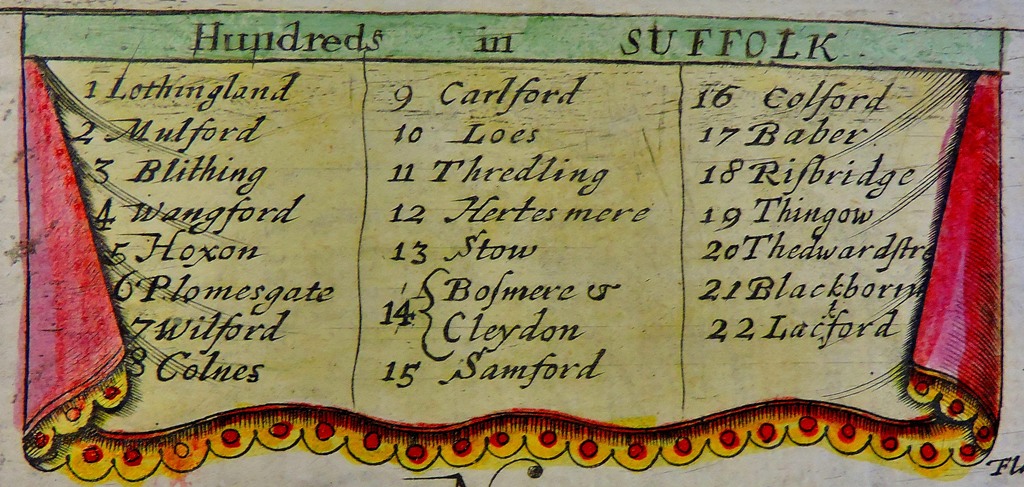 Hundreds in SUFFOLK
1 Lothingland
2 Mulford
3 Blithing
4 Wangford
5 Hoxon
6 Plomesgate
7 Wilford
8 Colnes
9 Carlford
10 Loes
11 Thredling
12 Hertesmere
13 Stow
14 { Boſmere &
Cleydon
15 Samford
16 Colford
17 Baber
18 Riſbridge
19 Thingow
20 Thedwardſtre
21 Blackborn
22 Lacford